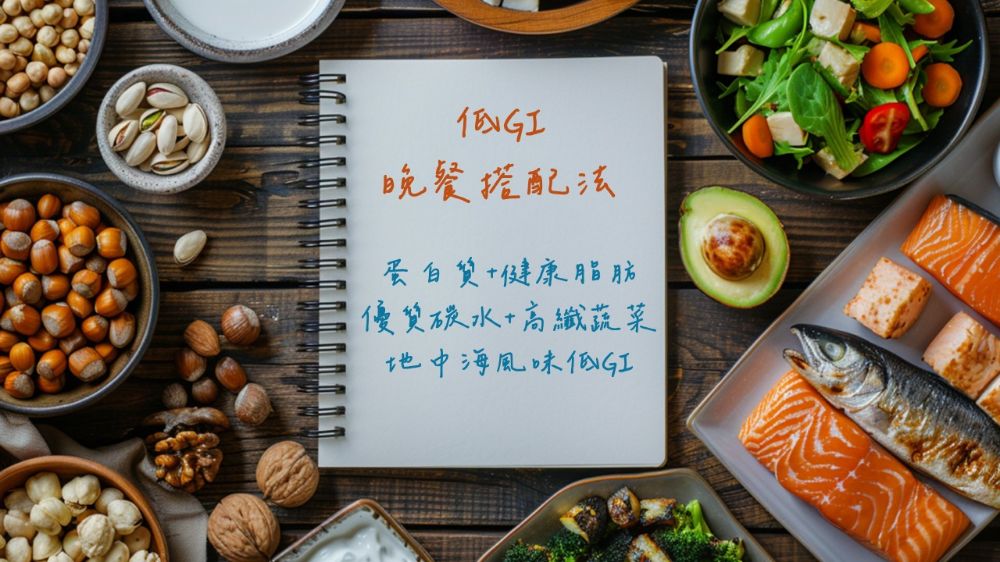 低GI
晚餐搭配法
蛋白質+健康脂肪
優質碳水+高纖蔬菜
地中海風味低GI